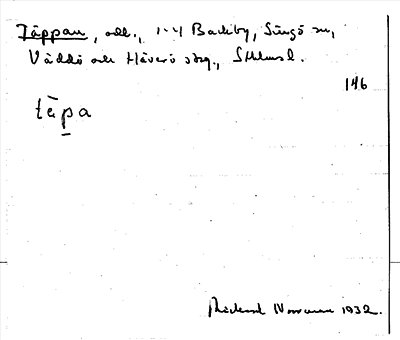 Täppan, odl., 1-4 Backby, Singö sn,
Väddö och Häverö skg., Sthlmsl.
146
täpa
Rickard Norrman 1932.